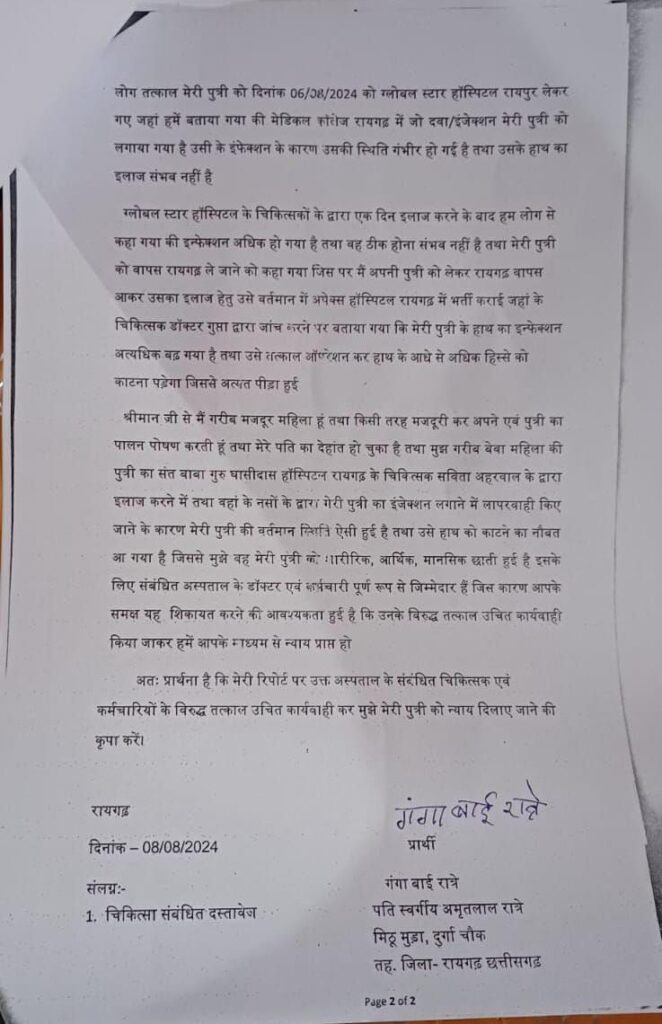 लोग तत्काल मेरी पुत्री को दिनांक 06/08/2024 को ग्लोबल स्टार हॉस्पिटल रायपुर लेकर
गए जहां हमें बताया गया की मेडिकल कॉलेज रायगढ़ में जो दवा/इंजेक्शन मेरी पुत्री को
लगाया गया है उसी के इंफेक्शन के कारण उसकी स्थिति गंभीर हो गई है तथा उसके हाथ का
इलाज संभव नहीं है
ग्लोबल स्टार हॉस्पिटल के चिकित्सकों के द्वारा एक दिन इलाज करने के बाद हम लोग से
कहा गया की इन्फेक्शन अधिक हो गया है तथा वह ठीक होना संभव नहीं है तथा मेरी पुत्री
को वापस रायगढ़ ले जाने को कहा गया जिस पर मैं अपनी पुत्री को लेकर रायगढ़ वापस
आकर उसका इलाज हेतु उसे वर्तमान में अपेक्स हॉस्पिटल रायगढ़ में भर्ती कराई जहां के
चिकित्सक डॉक्टर गुप्ता द्वारा जांच करने पर बताया गया कि मेरी पुत्री के हाथ का इन्फेक्शन
अत्यधिक बढ़ गया है तथा उसे तत्काल ऑपरेशन कर हाथ के आधे से अधिक हिस्से को
काटना पड़ेगा जिससे अत्यत पीड़ा हुई
श्रीमान जी से मैं गरीब मजदूर महिला हूं तथा किसी तरह मजदूरी कर अपने एवं पुत्री का
पालन पोषण करती हूं तथा मेरे पति का देहांत हो चुका है तथा मुझ गरीब बेवा महिला की
पुत्री का संत बाबा गुरु घासीदास हॉस्पिटल रायगढ़ के चिकित्सक सविता अहरवाल के द्वारा
इलाज करने में तथा वहां के नर्सो के द्वारा मेरी पुत्री का इंजेक्शन लगाने में लापरवाही किए
जाने के कारण मेरी पुत्री की वर्तमान स्थिति ऐसी हुई है तथा उसे हाथ को काटने का नौबत
आ गया है जिससे मुझे वह मेरी पुत्री को शारीरिक, आर्थिक, मानसिक छाती हुई है इसके
लिए संबंधित अस्पताल के डॉक्टर एवं कर्मचारी पूर्ण रूप से जिम्मेदार हैं जिस कारण आपके
समक्ष यह शिकायत करने की आवश्यकता हुई है कि उनके विरुद्ध तत्काल उचित कार्यवाही
किया जाकर हमें आपके माध्यम से न्याय प्राप्त हो
अतः प्रार्थना है कि मेरी रिपोर्ट पर उक्त अस्पताल के संबंधित चिकित्सक एवं
कर्मचारियों के विरुद्ध तत्काल उचित कार्यवाही कर मुझे मेरी पुत्री को न्याय दिलाए जाने की
कृपा करें।
रायगढ़
गंगा बाई रात्रे
दिनांक – 08/08/2024
प्रार्थी
संलग्न:-
1. चिकित्सा संबंधित दस्तावेज
गंगा बाई रात्रे
पति स्वर्गीय अमृतलाल रात्रे
मिठू मुड़ा, दुर्गा चौक
तह. जिला- रायगढ़ छत्तीसगढ़
Page 2 of 2